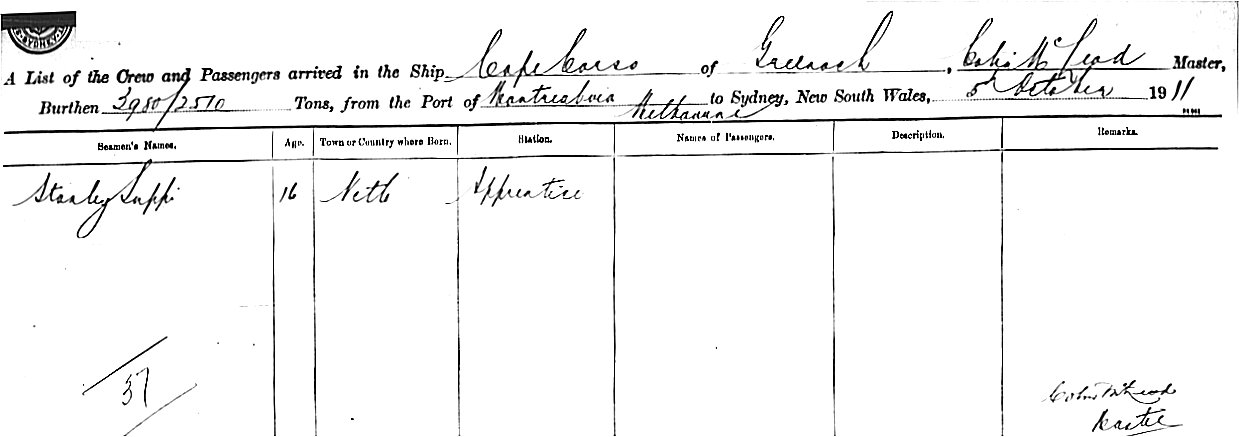 SYDNEY
A List of the Crew and Passengers arrived in the Ship Cape Corso of Greenock, Colin McLeod Master,
Burthen 3980/2510 Tons, from the Port of Melbourne to Sydney, New South Wales, 5 October 1911
Seamen's Names. Age. Town or Country where Born. Station. Names of Passengers. Description. Remarks.
Stanley 16 Neth Apprentice
37
Colin McLeod
Master